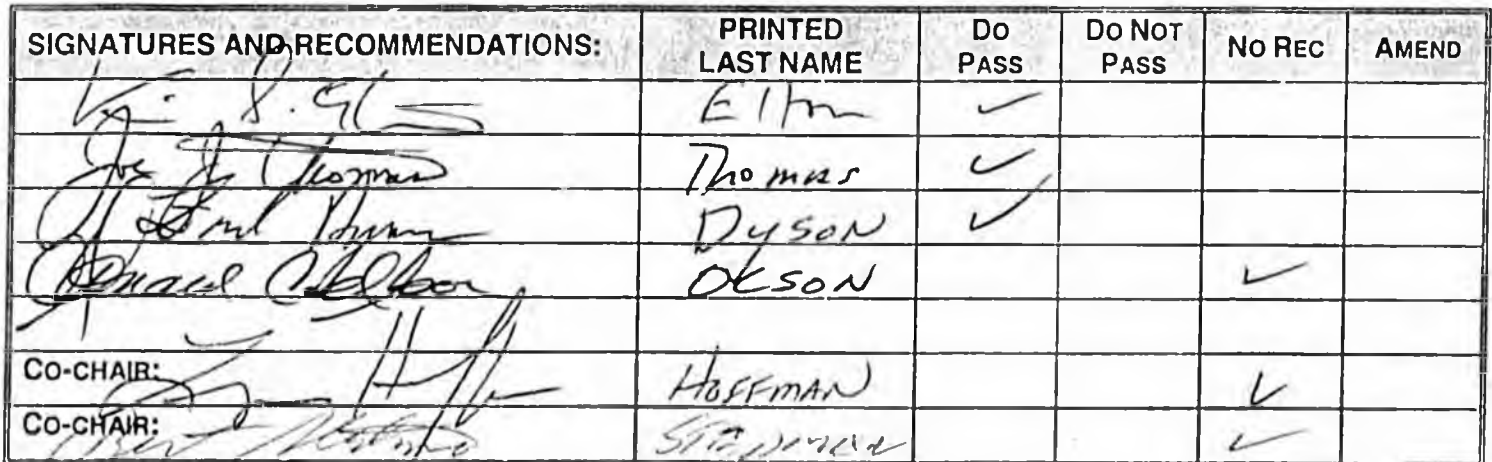 SIGNATURES AND RECOMMENDATIONS: PRINTED LAST NAME DO PASS DO NOT PASS NO REC AMEND
Elton ✓
Joe Thomas Thomas ✓
Dyson ✓
Donald Olson OLSON ✓
CO-CHAIR: HOFFMAN ✓
CO-CHAIR: Stedman ✓